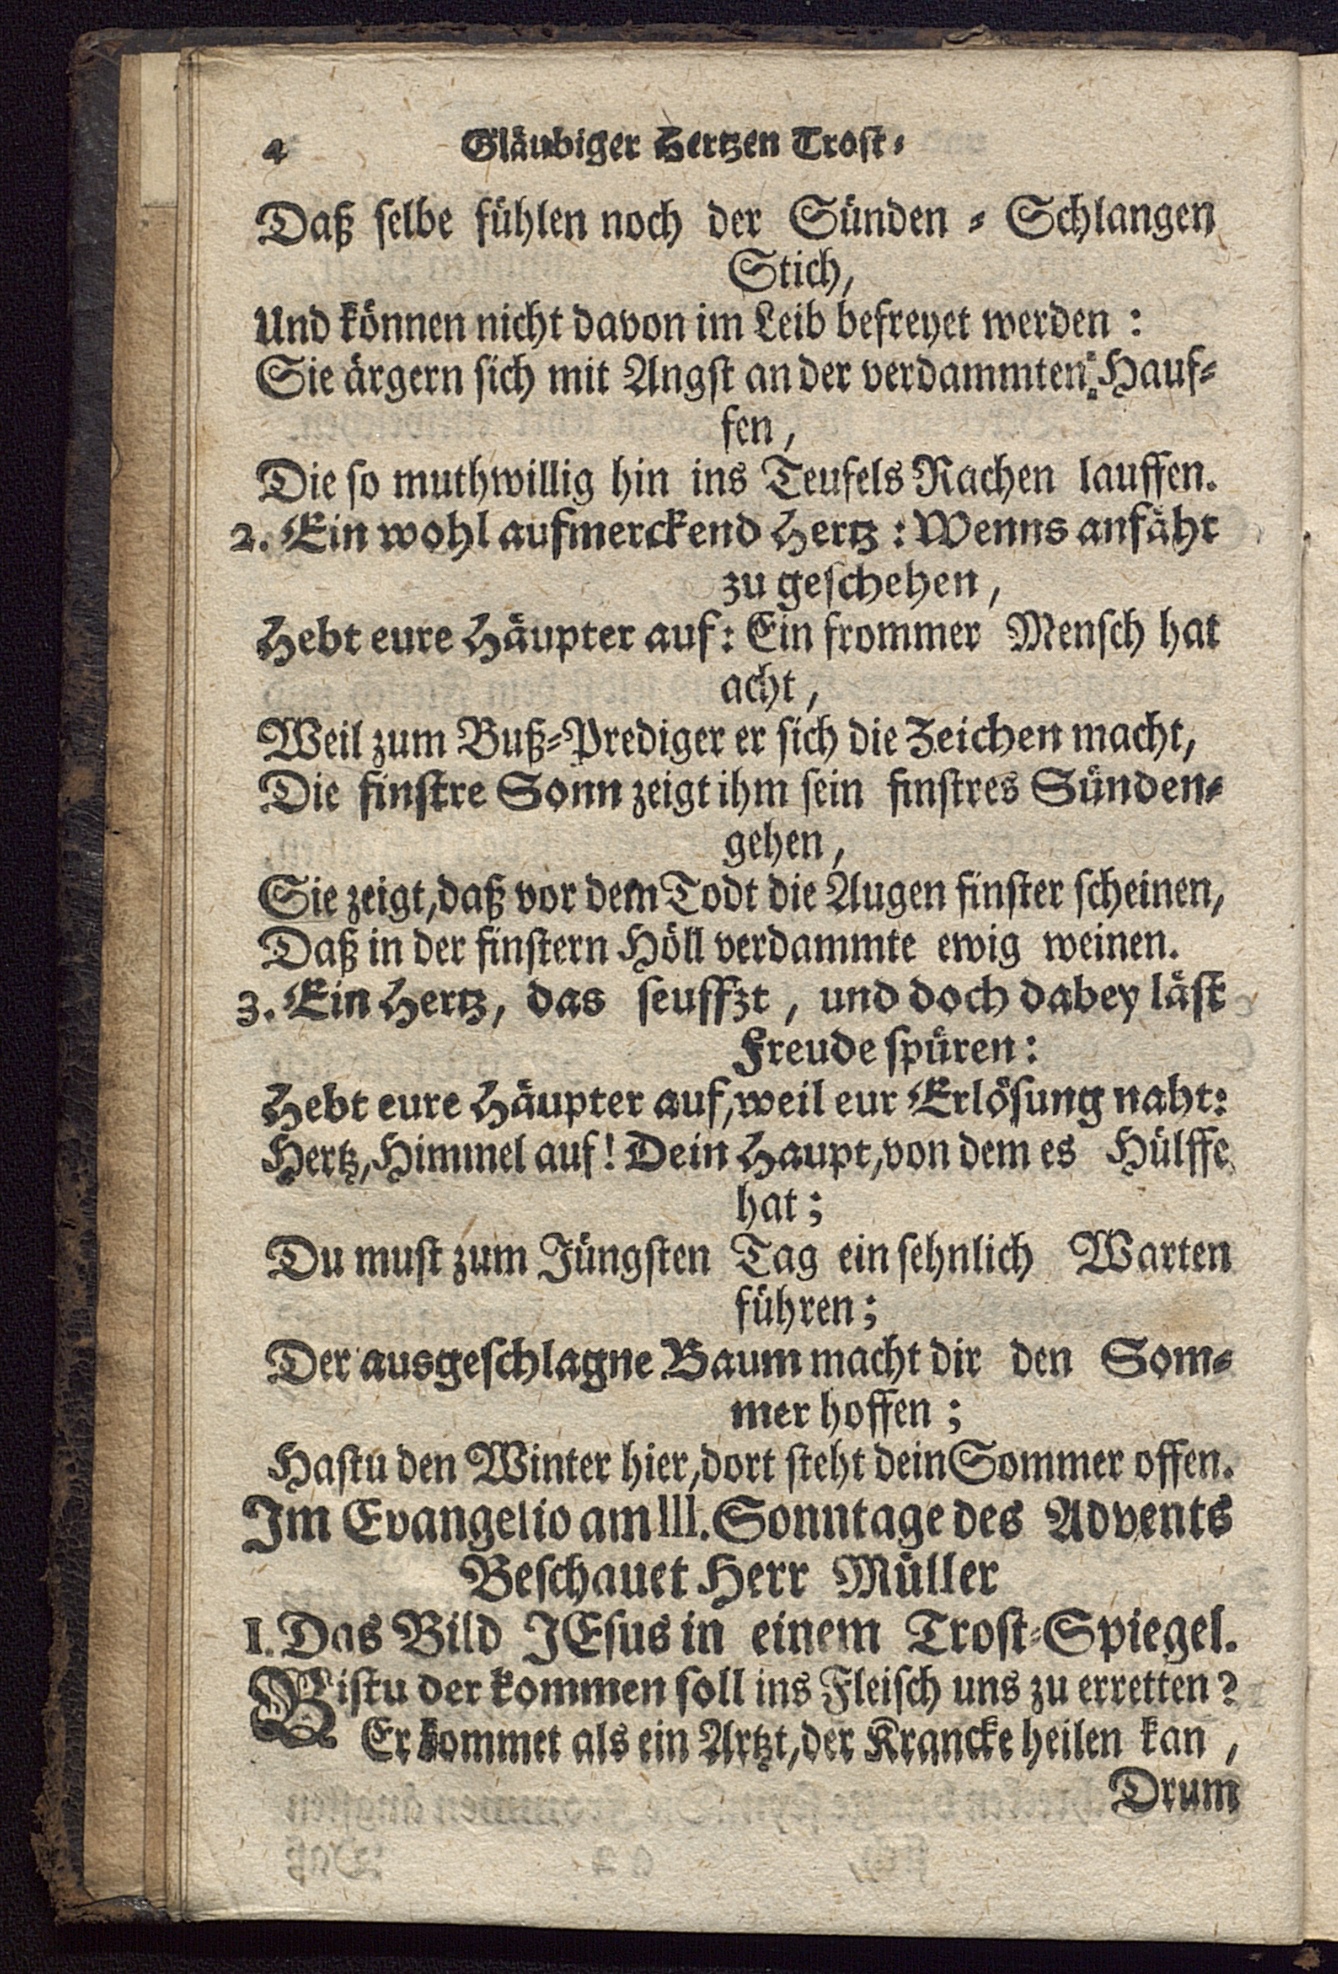 4 Gläubiger Hertzen Trost-
Daß selbe fühlen noch der Sünden - Schlangen
Stich,
Und können nicht davon im Leib befreyet werden :
Sie ärgern sich mit Angst an der verdammten Hauf-
fen,
Die so muthwillig hin ins Teufels Rachen lauffen.
2. Ein wohl aufmerckend Hertz : Wenns anfäht
zu geschehen,
Hebt eure Häupter auf: Ein frommer Mensch hat
acht,
Weil zum Buß-Prediger er sich die Zeichen macht,
Die finstre Sonn zeigt ihm sein finstres Sünden-
gehen,
Sie zeigt, daß vor dem Todt die Augen finster scheinen,
Daß in der finstern Höll verdammte ewig weinen.
3. Ein Hertz, das seuffzt, und doch dabey läst
Freude spüren:
Hebt eure Häupter auf, weil eur Erlösung naht:
Hertz, Himmel auf! Dein Haupt, von dem es Hülffe
hat;
Du must zum Jüngsten Tag ein sehnlich Warten
führen;
Der ausgeschlagne Baum macht dir den Som-
mer hoffen;
Hastu den Winter hier, dort steht dein Sommer offen.
Im Evangelio am III. Sonntage des Advents
Beschauet Herr Müller
I. Das Bild JEsus in einem Trost-Spiegel.
Bistu der kommen soll ins Fleisch uns zu erretten?
Er kommet als ein Artzt, der Krancke heilen kan,
Drum